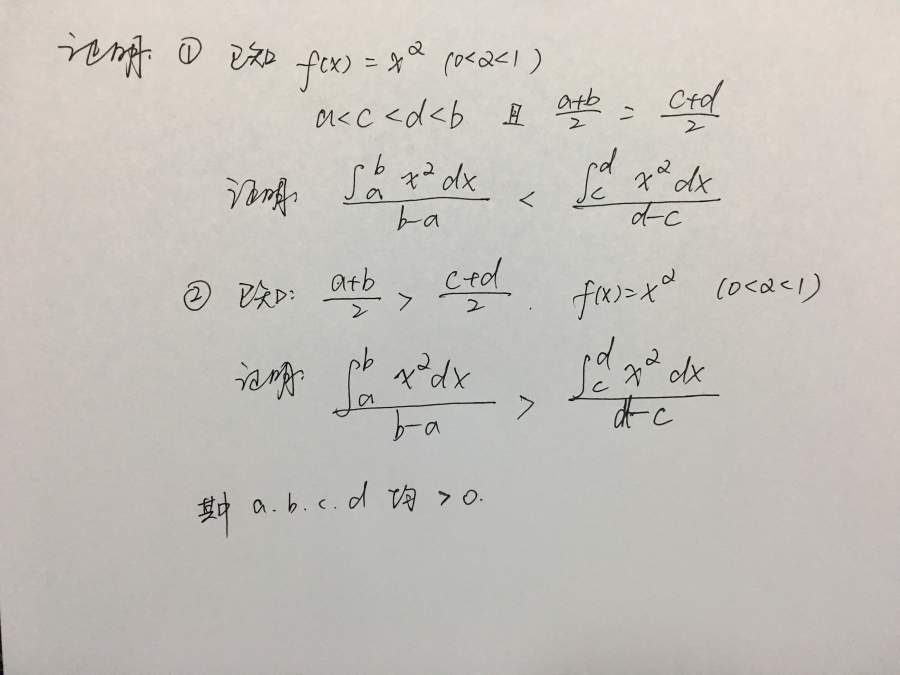 证明: ① 已知 f(x) = x^α (0<α<1)
a<c<d<b 且 \frac{a+b}{2} = \frac{c+d}{2}
证明: \frac{\int_a^b x^α dx}{b-a} < \frac{\int_c^d x^α dx}{d-c}
② 已知: \frac{a+b}{2} > \frac{c+d}{2} . f(x)=x^α (0<α<1)
证明: \frac{\int_a^b x^α dx}{b-a} > \frac{\int_c^d x^α dx}{d-c}
其中 a.b.c.d 均 >0.